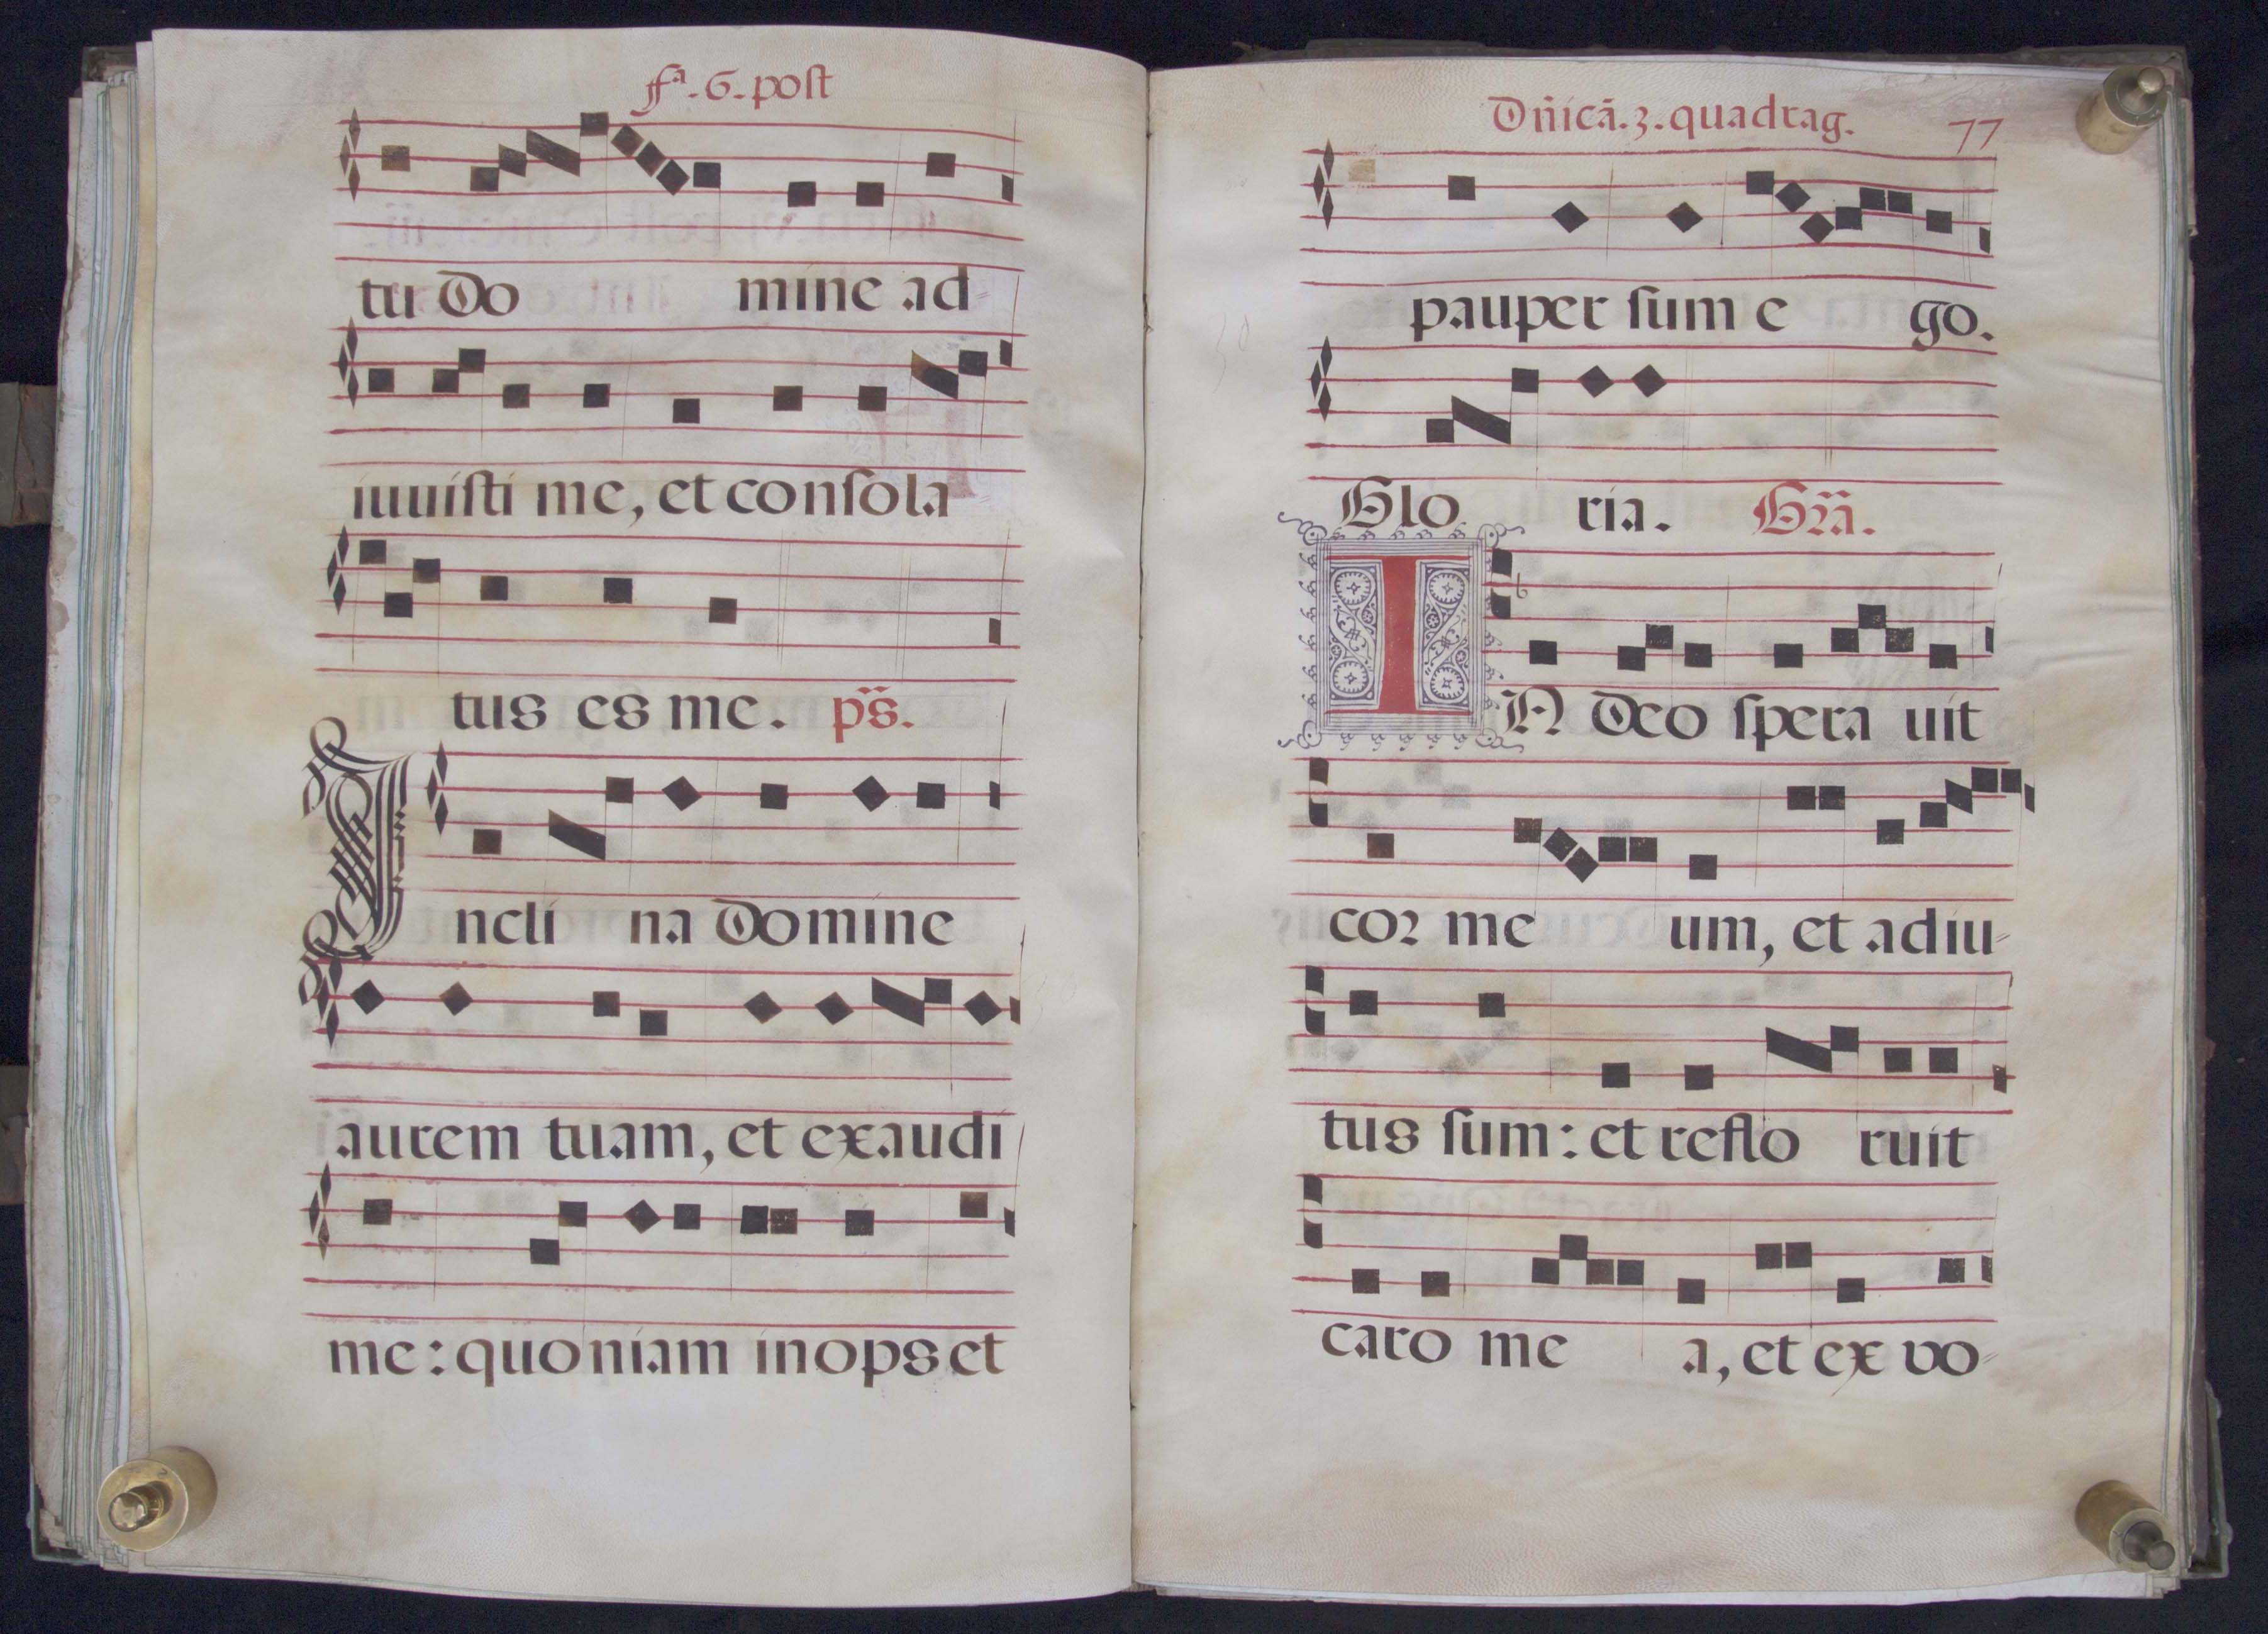 fª. 6. post
tu Do mine ad-
iuuisti me, et consola
tus es me. ps̃.
Incli na Domine
aurem tuam, et exaudi
me: quoniam inops et
Dñicã. 3. quadrag. 77
pauper sum e go.
Glo ria. Grã.
IN Deo spera uit
cor me um, et adiu-
tus sum: et reflo ruit
caro me a, et ex vo-